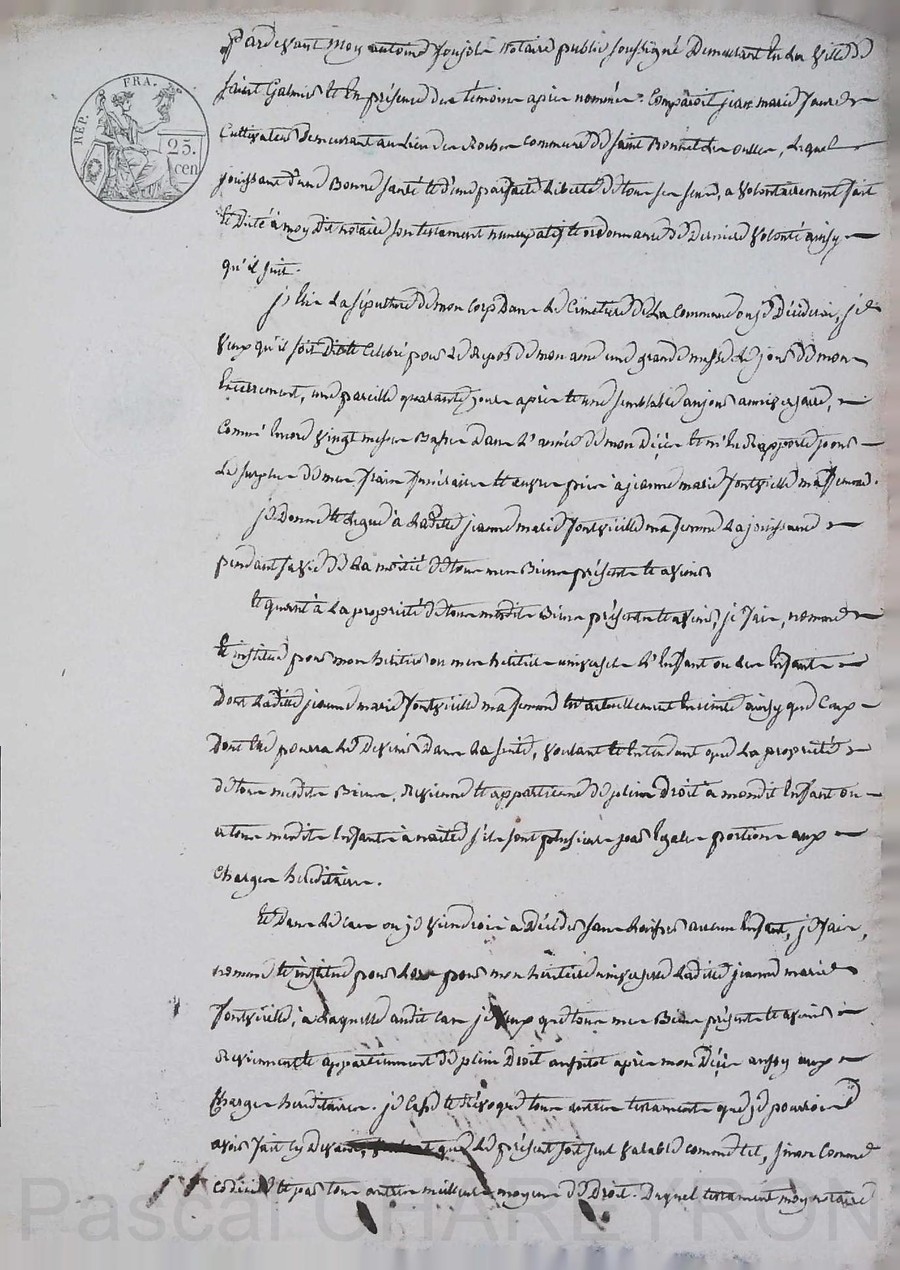 RÉP. FRA.
25. cen
Pardevant moy antoine notaire public soussigné Demeurant en la Ville de
saint Galmier et en présence des témoins après nommés. Comparoit jean marie faure
Cultivateur demeurant au lieu des Rocher commune de saint Bonnet les oulles, lequel
jouissant d'une Bonne santé et d'une parfaite Liberté de tous ses sens, a volontairement fait
et dicté à moy dit notaire son testament nuncupatif et ordonnance de Derniere volonté ainsy
qu'il suit.
je Elie la sépulture de mon corp Dans le Cimetiere de La Commune ou je Déciderai, je
veux qu'il soit Celebré pour le Repos de mon ame une grande messe le jour de mon
Enterrement, une pareille quarante jours après et une semblable au jour anniversaire,
Comme Encore vingt messes Basses Dans L'année de mon Décès et m'En Rapporte pour
Le surplus de mes frais funéraires et autres prières à jeanne marie fontvieille ma femme.
je Donne et Legue à Ladite jeanne marie fontvieille ma femme La jouissance
pendant sa vie de La moitié de tous mes Biens présents et avenir
et quant à La propriété de tous mesdits Biens présents et avenir, je fais, nomme
et institue pour mon heritier ou mes heritiers universels L'Enfant ou les Enfants
Dont Ladite jeanne marie fontvieille ma femme Est actuellement Enceinte ainsy que Ceux
Dont Elle pourra Le Devenir Dans La suite, voulant et Entendant que La propriété
de tous mesdits Biens, revienne et appartienne de plein Droit à mondit Enfant ou
a tous mesdits Enfants à naitre s'ils sont plusieurs par Egales portions aux
Charges hereditaires.
Et Dans Le Cas ou je viendrois à Décéder sans Laisser aucun Enfant, je fais,
nomme et institue pour Lors pour mon heritiere universelle Ladite jeanne marie
fontvieille, à Laquelle audit Cas je veux que tous mes Biens présents et avenir
Reviennent et appartiennent de plein Droit aussitot après mon Décès aussy aux
Charges hereditaires. je Casse et Révoque tous autres testaments que je pourrois
avoir fait cy Devant, que Le présent soit seul valable comme tel, sinon Comme
Codicile et par tous autres meilleurs moyens de Droit. Duquel testament moy notaire
Pascal CHAREYRON